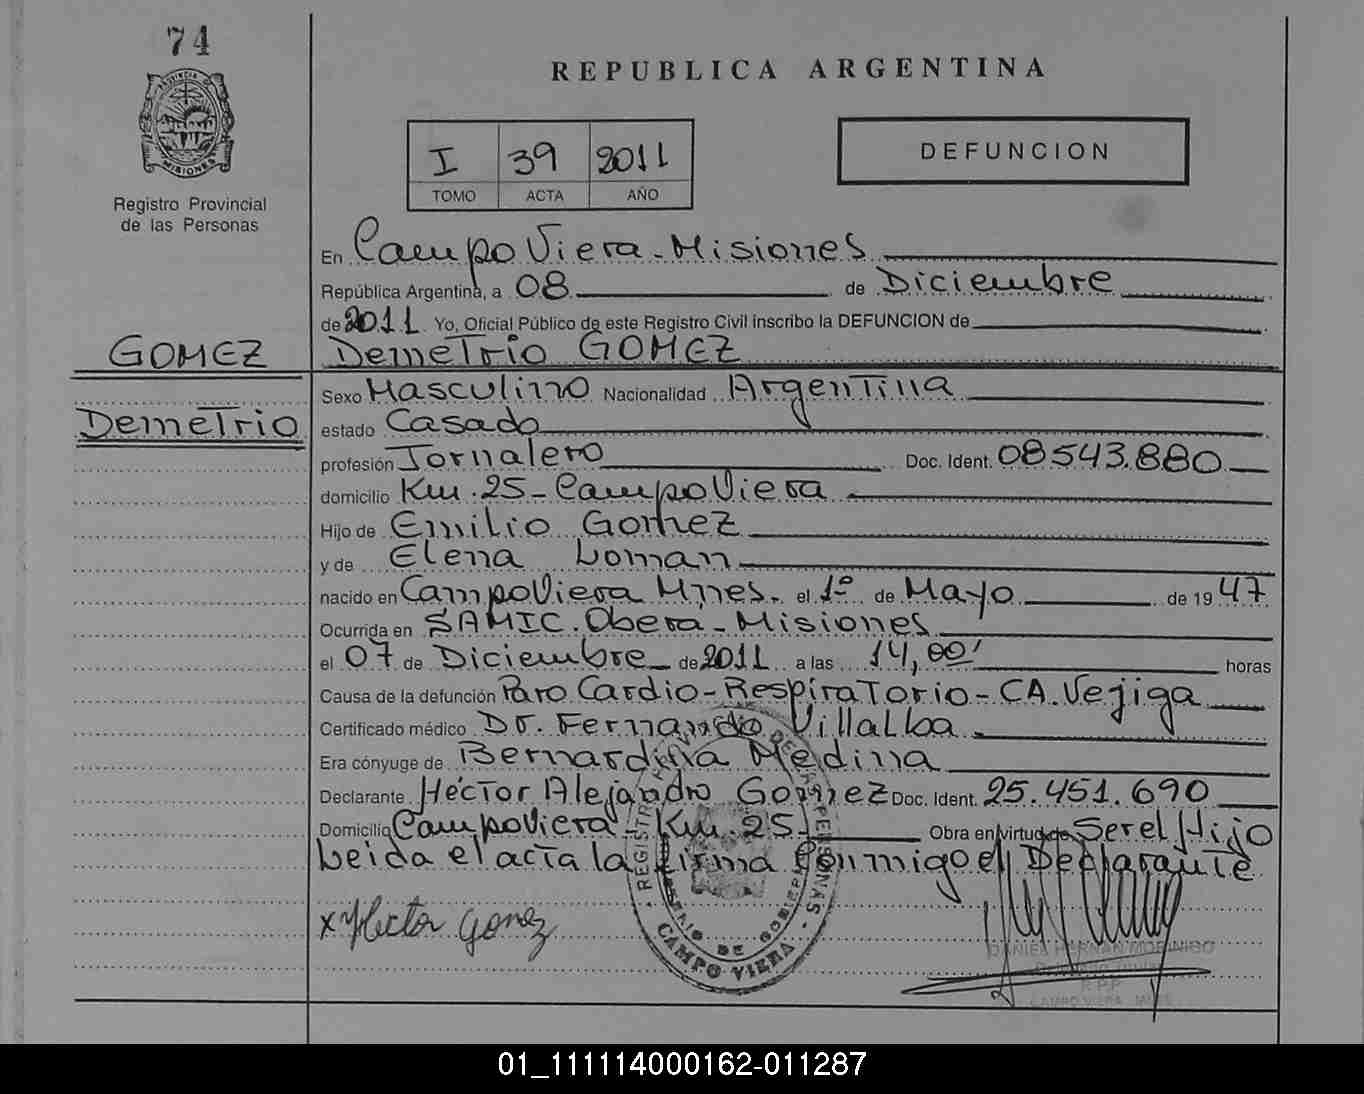 74
REPUBLICA ARGENTINA
PROVINCIA DE
MISIONES
Registro Provincial
de las Personas
I 39 2011
TOMO ACTA AÑO
DEFUNCION
En Campo Viera - Misiones
República Argentina, a 08 de Diciembre
de 2011 Yo, Oficial Público de este Registro Civil inscribo la DEFUNCION de
GOMEZ
Demetrio GOMEZ
Sexo Masculino Nacionalidad Argentina
Demetrio
estado Casado
profesión Jornalero Doc. Ident. 08.543.880
domicilio Km. 25 - Campo Viera
Hijo de Emilio Gomez
y de Elena Loman
nacido en Campo Viera Mnes. el 1º de Mayo de 1947
Ocurrida en SAMIC. Obera - Misiones
el 07 de Diciembre de 2011 a las 14,00' horas
Causa de la defunción Paro Cardio-Respiratorio - CA. Vejiga
Certificado médico Dr. Fernando Villalba
Era cónyuge de Bernardina Medina
Declarante Héctor Alejandro Gomez Doc. Ident. 25.451.690
Domicilio Campo Viera - Km. 25 - Obra en virtud de Ser el Hijo
Leida el acta la Firma Conmigo el Declarante
x Hector Gomez
CAMPO VIERA
DANIEL HERNAN MORINIGO
R.P.P.
CAMPO VIERA
01_111114000162-011287